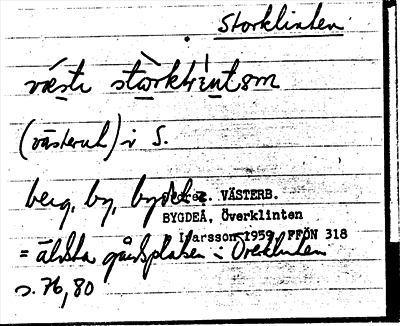 Storklinten
västr
(västerut) i S.
berg, by, bydel =
VÄSTERB.
BYGDEÅ, Överklinten
Larsson 1959, FFÖN 318
= äldsta gårdsplatsen i Överklinten
s. 76, 80